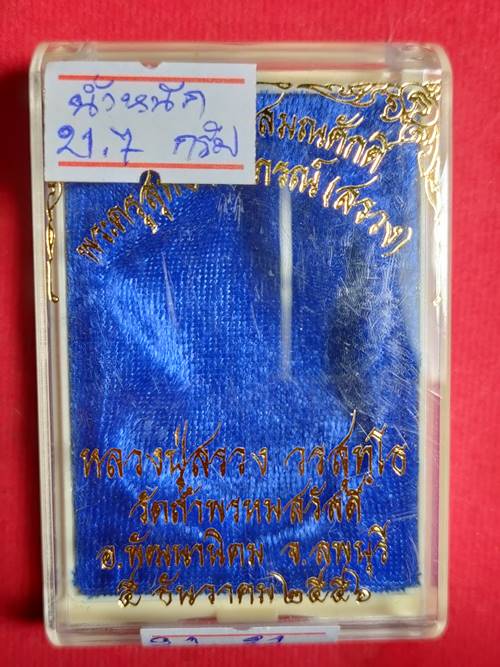 น้ำหนัก
21.7 กรัม
สมณศักดิ์
พระครูสุท ภรณ์ (สรวง)
หลวงปู่สรวง วรสุทฺโธ
วัดถ้ำพรหมสวัสดิ์
อ.พัฒนานิคม จ.ลพบุรี
๕ ธันวาคม ๒๕๕๖